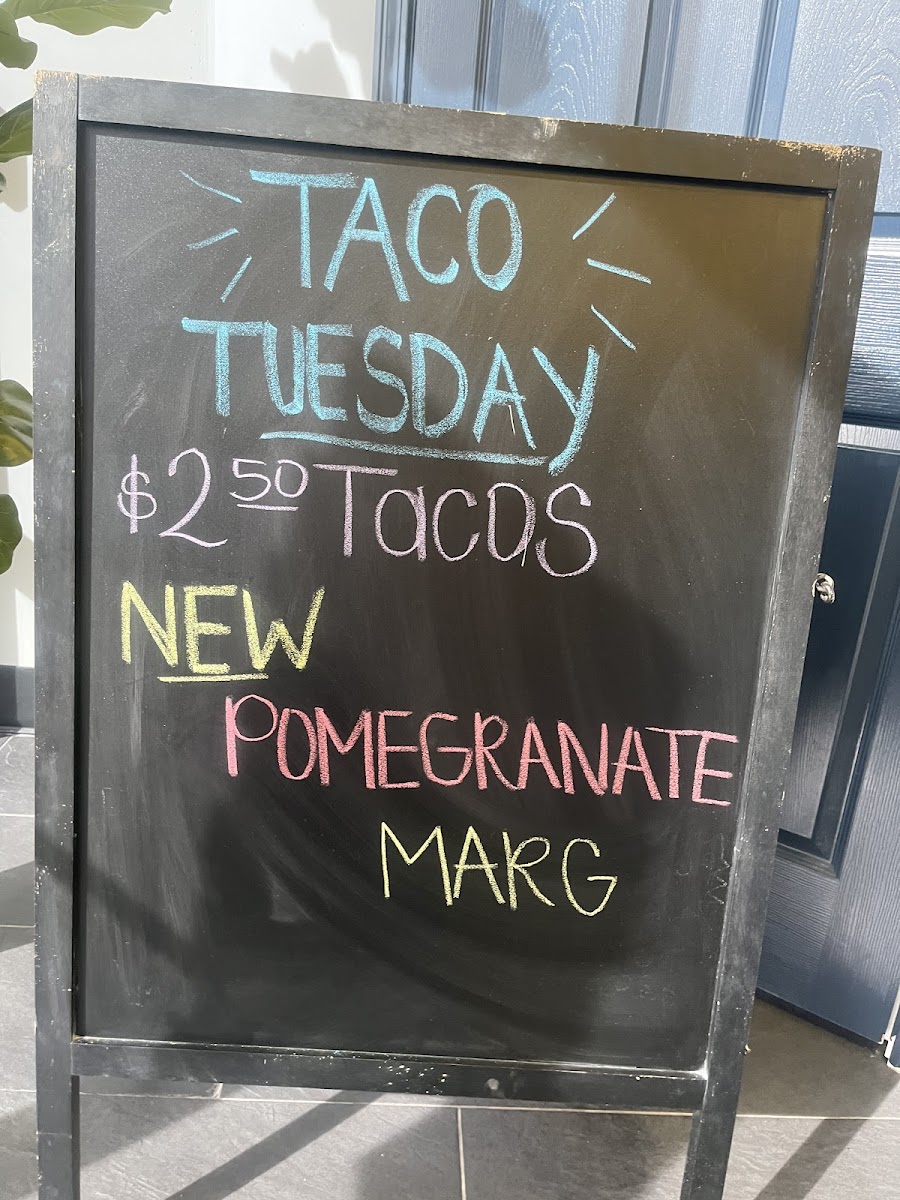 TACO
TUESDAY
$2.50 Tacos
NEW
POMEGRANATE
MARG